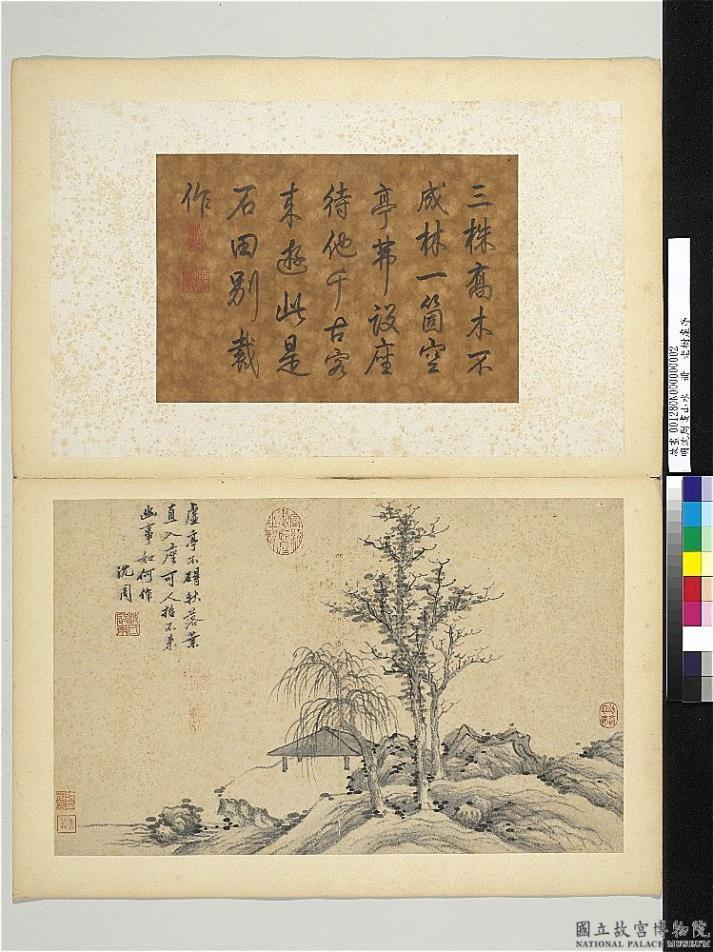 三株喬木不
成林一箇空
亭設座
待他千古客
来遊此是
石田別裁
作
虛亭不碍秋落葉
直入座可人招不来
幽事如何作
沈周
國立故宮博物院
NATIONAL PALACE MUSEUM